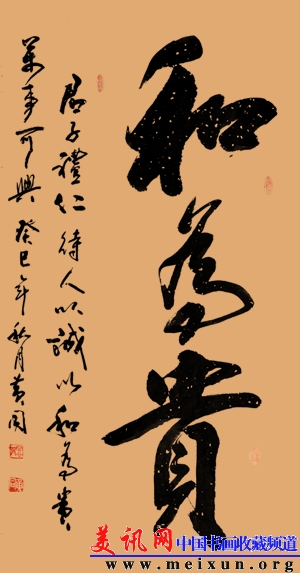 和為貴
君子禮仁待人以誠以和為貴
萬事可興 癸巳年秋月黃同
美讯网 中国书画收藏频道
www.meixun.org